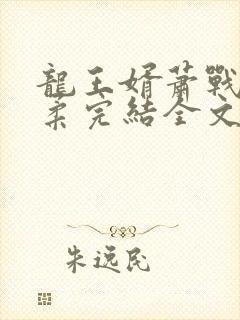 龍王婿蕭戰
柔完結全文
朱逸民